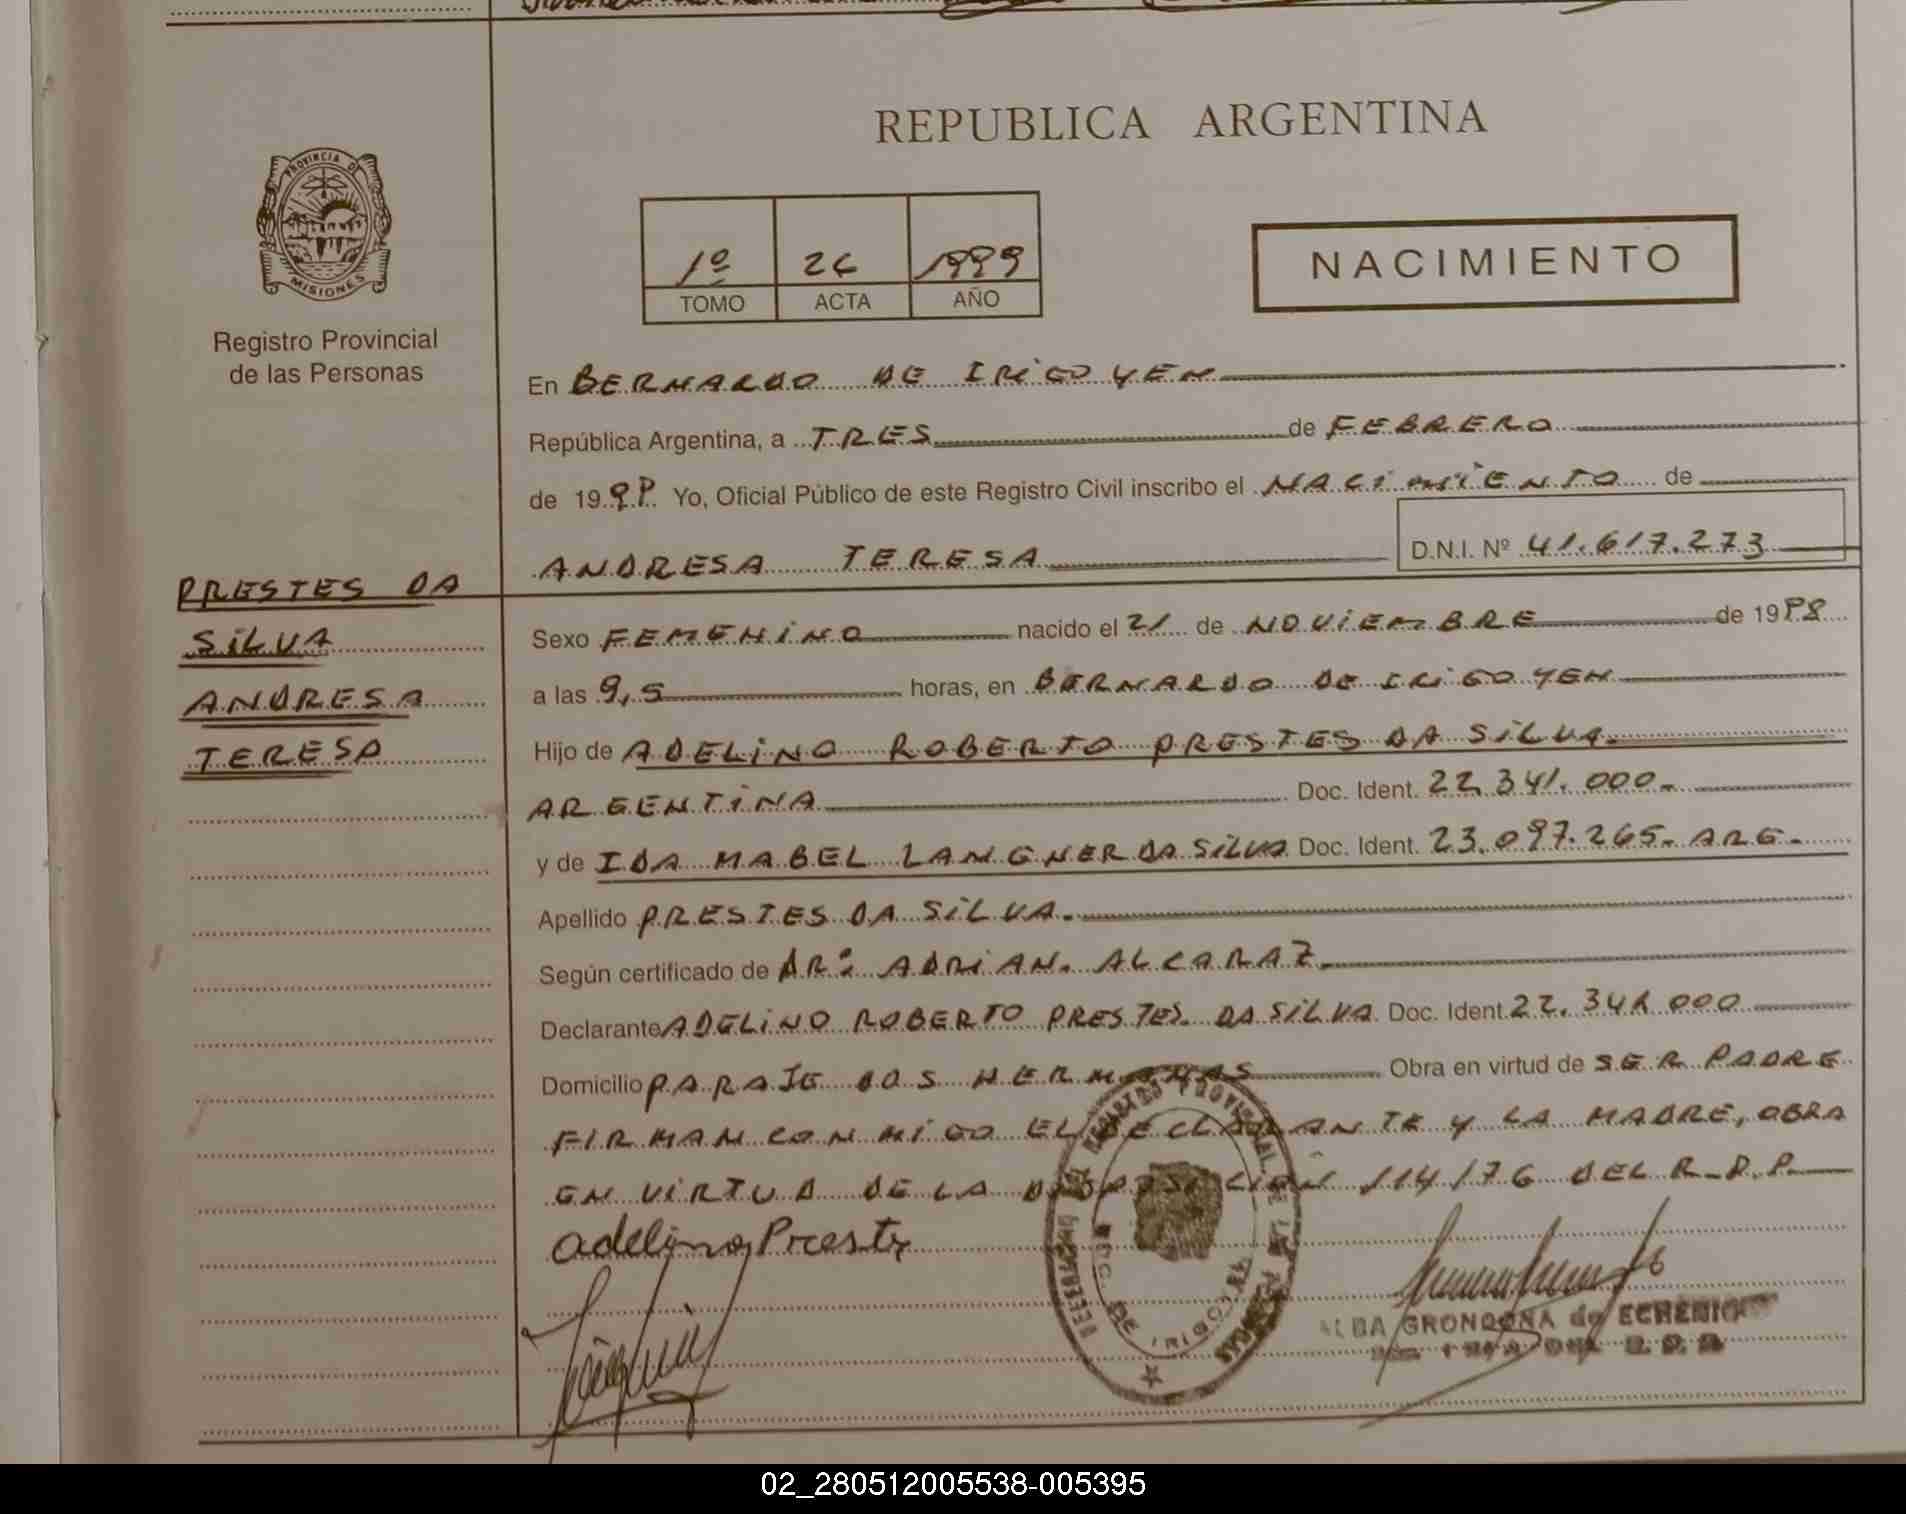 REPUBLICA ARGENTINA
PROVINCIA DE
MISIONES
Registro Provincial
de las Personas
1º 26 1999
TOMO ACTA AÑO
NACIMIENTO
En BERNARDO DE IRIGOYEN
República Argentina, a TRES de FEBRERO
de 1999 Yo, Oficial Público de este Registro Civil inscribo el NACIMIENTO de
ANDRESA TERESA D.N.I. Nº 41.617.273
PRESTES DA
SILVA
ANDRESA
TERESA
Sexo FEMENINO nacido el 21 de NOVIEMBRE de 1998
a las 9,5 horas, en BERNARDO DE IRIGOYEN
Hijo de ADELINO ROBERTO PRESTES DA SILVA.
ARGENTINA Doc. Ident. 22.341.000.-
y de IDA MABEL LANGNER DA SILVA Doc. Ident. 23.097.265.- ARG.-
Apellido PRESTES DA SILVA.
Según certificado de DR: ADRIAN. ALCARAZ.
Declarante ADELINO ROBERTO PRESTES. DA SILVA Doc. Ident. 22.341.000
Domicilio PARAJE DOS HERMANAS Obra en virtud de SER PADRE
FIRMAN CONMIGO EL DECLARANTE Y LA MADRE, OBRA
EN VIRTUD DE LA DISPOSICIÓN 114/76 DEL R.D.P.
adelino Preste
ALBA GRONDONA de ECHENIQUE
02_280512005538-005395